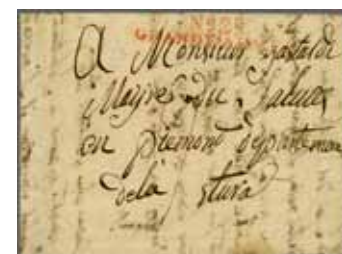 No
GRANDE
A Monsieur gastaldi
Mayre du Saluces
en piemont département
dela stura